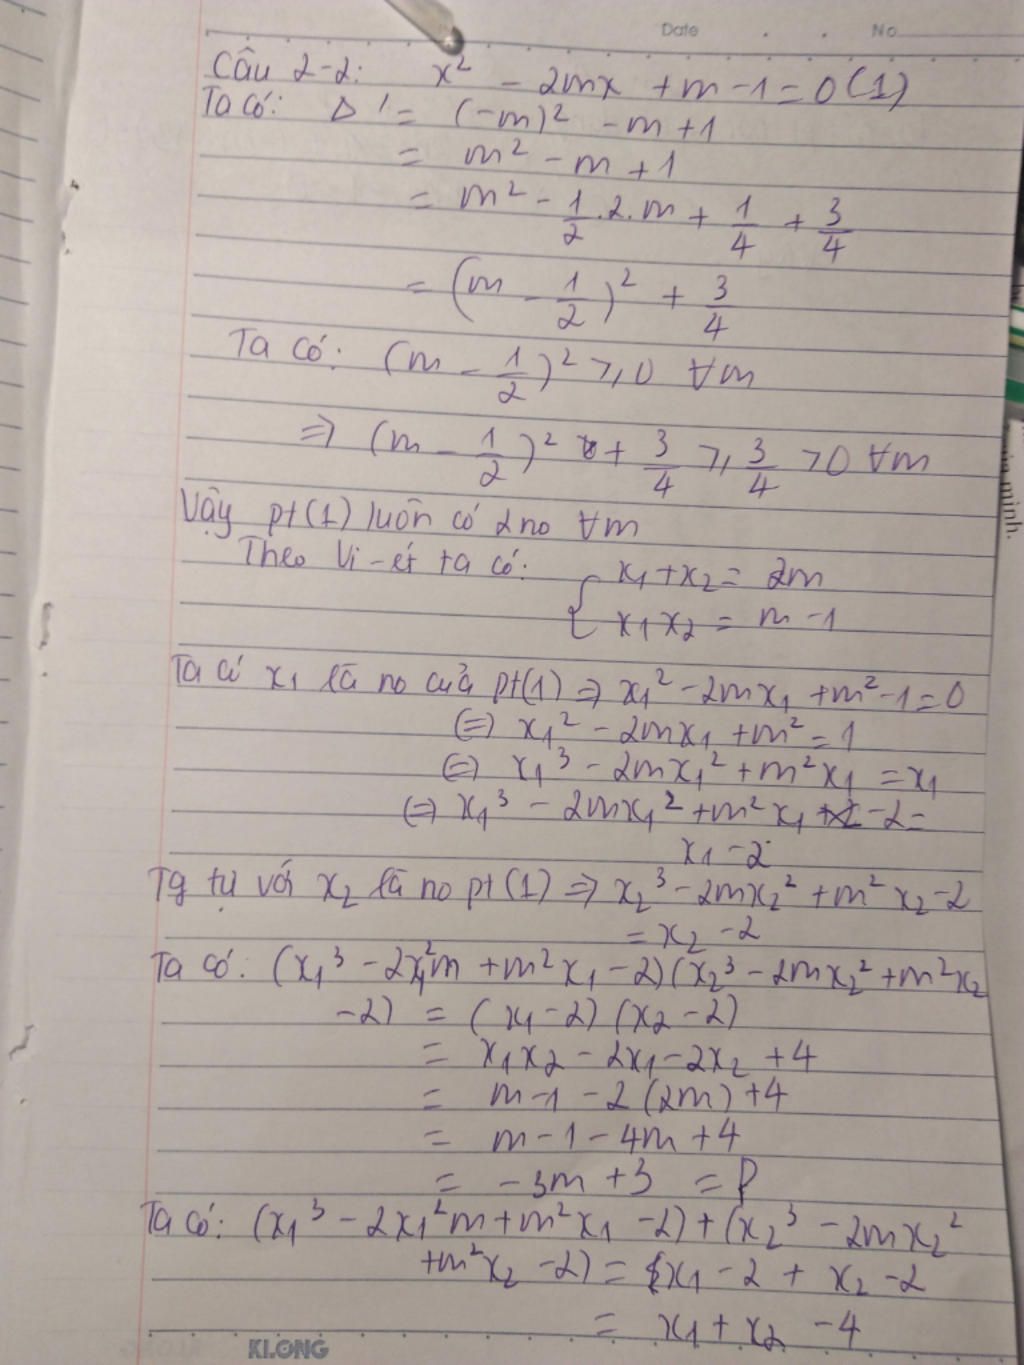 Date . . No
Câu 2-2: x² - 2mx + m - 1 = 0 (1)
Ta có: Δ' = (-m)² - m + 1
= m² - m + 1
= m² - 1/2 . 2 . m + 1/4 + 3/4
= (m - 1/2)² + 3/4
Ta có: (m - 1/2)² ≥ 0 ∀m
⇒ (m - 1/2)² + 3/4 ≥ 3/4 > 0 ∀m
Vậy pt(1) luôn có 2 no ∀m
Theo Vi-ét ta có: { x₁ + x₂ = 2m
x₁x₂ = m - 1
Ta có x₁ là no của pt(1) ⇒ x₁² - 2mx₁ + m² - 1 = 0
(=) x₁² - 2mx₁ + m² = 1
(=) x₁³ - 2mx₁² + m²x₁ = x₁
(=) x₁³ - 2mx₁² + m²x₁ - 2 =
x₁ - 2
Tg tự với x₂ là no pt(1) ⇒ x₂³ - 2mx₂² + m²x₂ - 2
= x₂ - 2
Ta có: (x₁³ - 2x₁²m + m²x₁ - 2)(x₂³ - 2mx₂² + m²x₂
- 2) = (x₁ - 2)(x₂ - 2)
= x₁x₂ - 2x₁ - 2x₂ + 4
= m - 1 - 2(2m) + 4
= m - 1 - 4m + 4
= -3m + 3 = P
Ta có: (x₁³ - 2x₁²m + m²x₁ - 2) + (x₂³ - 2mx₂²
+ m²x₂ - 2) = x₁ - 2 + x₂ - 2
= x₁ + x₂ - 4
KLONG